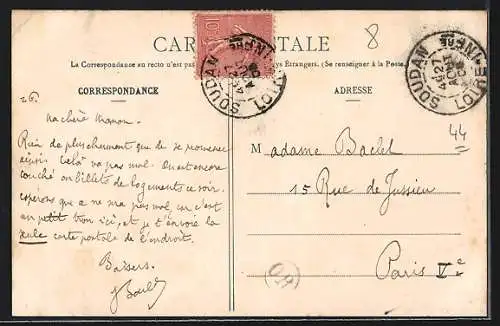 CARTE POSTALE
8
La Correspondance au recto n'est pas Pays Étrangers. (Se renseigner à la Poste.)
CORRESPONDANCE
ADRESSE
SOUDAN
LOIRE INFRE
SOUDAN
LOIRE INFRE
26.
Ma chère Maman.
Rien de plus charmant que de se promener
ainsi. Cela va pas mal. On est encore
couché en billets de logements ce soir.
espérons que ce ne sera pas mal, car c'est
un petit trou ici, et je t'envoie la
seule carte postale de l'endroit.
Baisers.
Madame Baclet
15 Rue de Jussieu
Paris Ve
44
OR
10